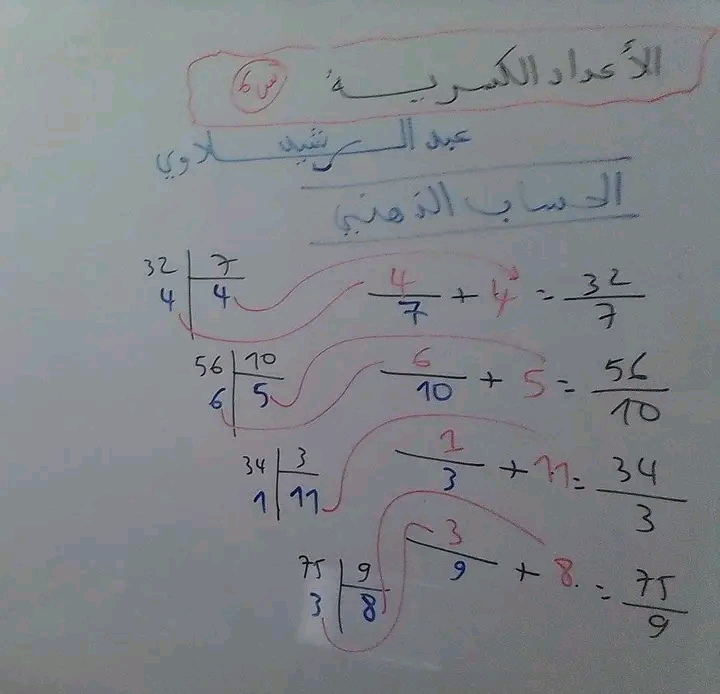 الأعداد الكسرية س6
عبد الرشيد سلاوي
الحساب الذهني
32 | 7
4 | 4
4/7 + 4 = 32/7
56 | 10
6 | 5
6/10 + 5 = 56/10
34 | 3
1 | 11
1/3 + 11 = 34/3
75 | 9
3 | 8
3/9 + 8 = 75/9